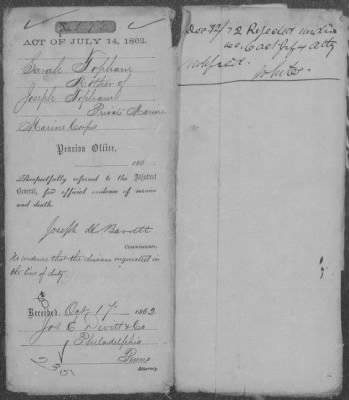 ACT OF JULY 14, 1862.
Sarah Topham
Mother of
Joseph Topham
Private Marine
Marine Corps
Pension Office,
186
Respectfully referred to the Adjutant
General, for official evidence of service
and death.
Joseph H Barrett
Commissioner.
No evidence that the disease originated in
the line of duty
Received, Oct 17 1862
Jos. E. Devitt & Co
Philadelphia
Penna
Attorney.
Rejected
Atty
notified.